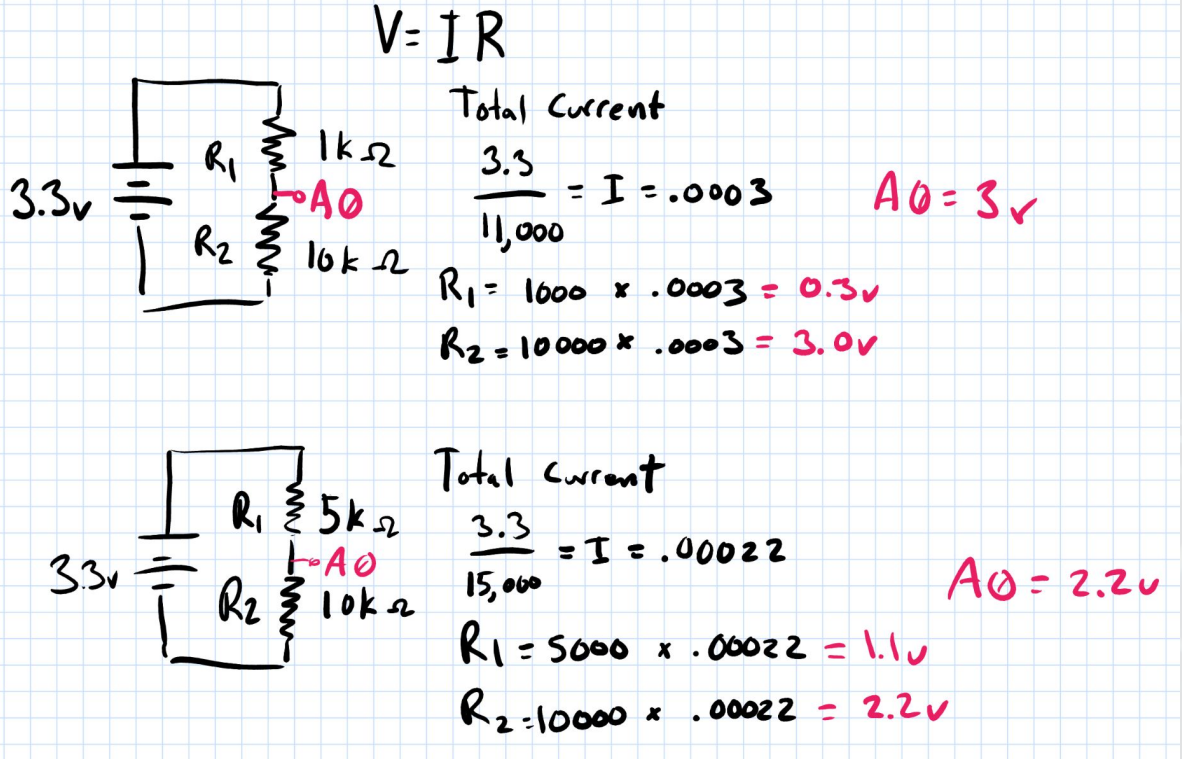 V=IR
3.3v
R₁
1kΩ
A0
R₂
10kΩ
Total Current
3.3
11,000
= I = .0003
R₁ = 1000 x .0003 = 0.3v
R₂ = 10000 x .0003 = 3.0v
A0 = 3v
3.3v
R₁
5kΩ
A0
R₂
10kΩ
Total Current
3.3
15,000
= I = .00022
R1 = 5000 x .00022 = 1.1v
R₂ = 10000 x .00022 = 2.2v
A0 = 2.2v